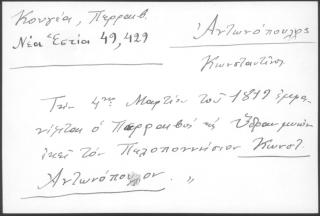 Κουγέα, Περραιβ.
Νέα Εστία 49, 429
Ἀντωνόπουλος
Κωνσταντῖνος
Τὴν 4ην Μαρτίου τοῦ 1819 ἐμφα-
νίζεται ὁ Περραιβὸς εἰς Ὕδραν
ἐκεῖ τὸν Πελοποννήσιον Κωνστ.
Ἀντωνόπουλον. "